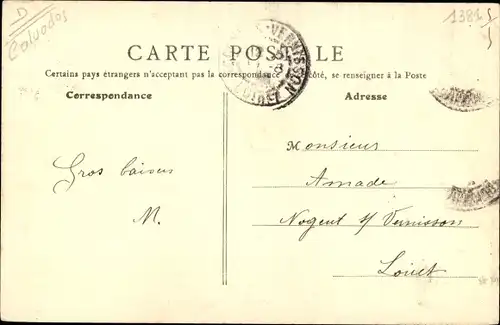 D
Calvados
1381
CARTE POSTALE
Certains pays étrangers n'acceptant pas la correspondance côté, se renseigner à la Poste
Correspondance
Adresse
VERNISSON
LOIRET
Monsieur
Amade
Nogent s/ Vernisson
Loiret
Gros baisers
M.